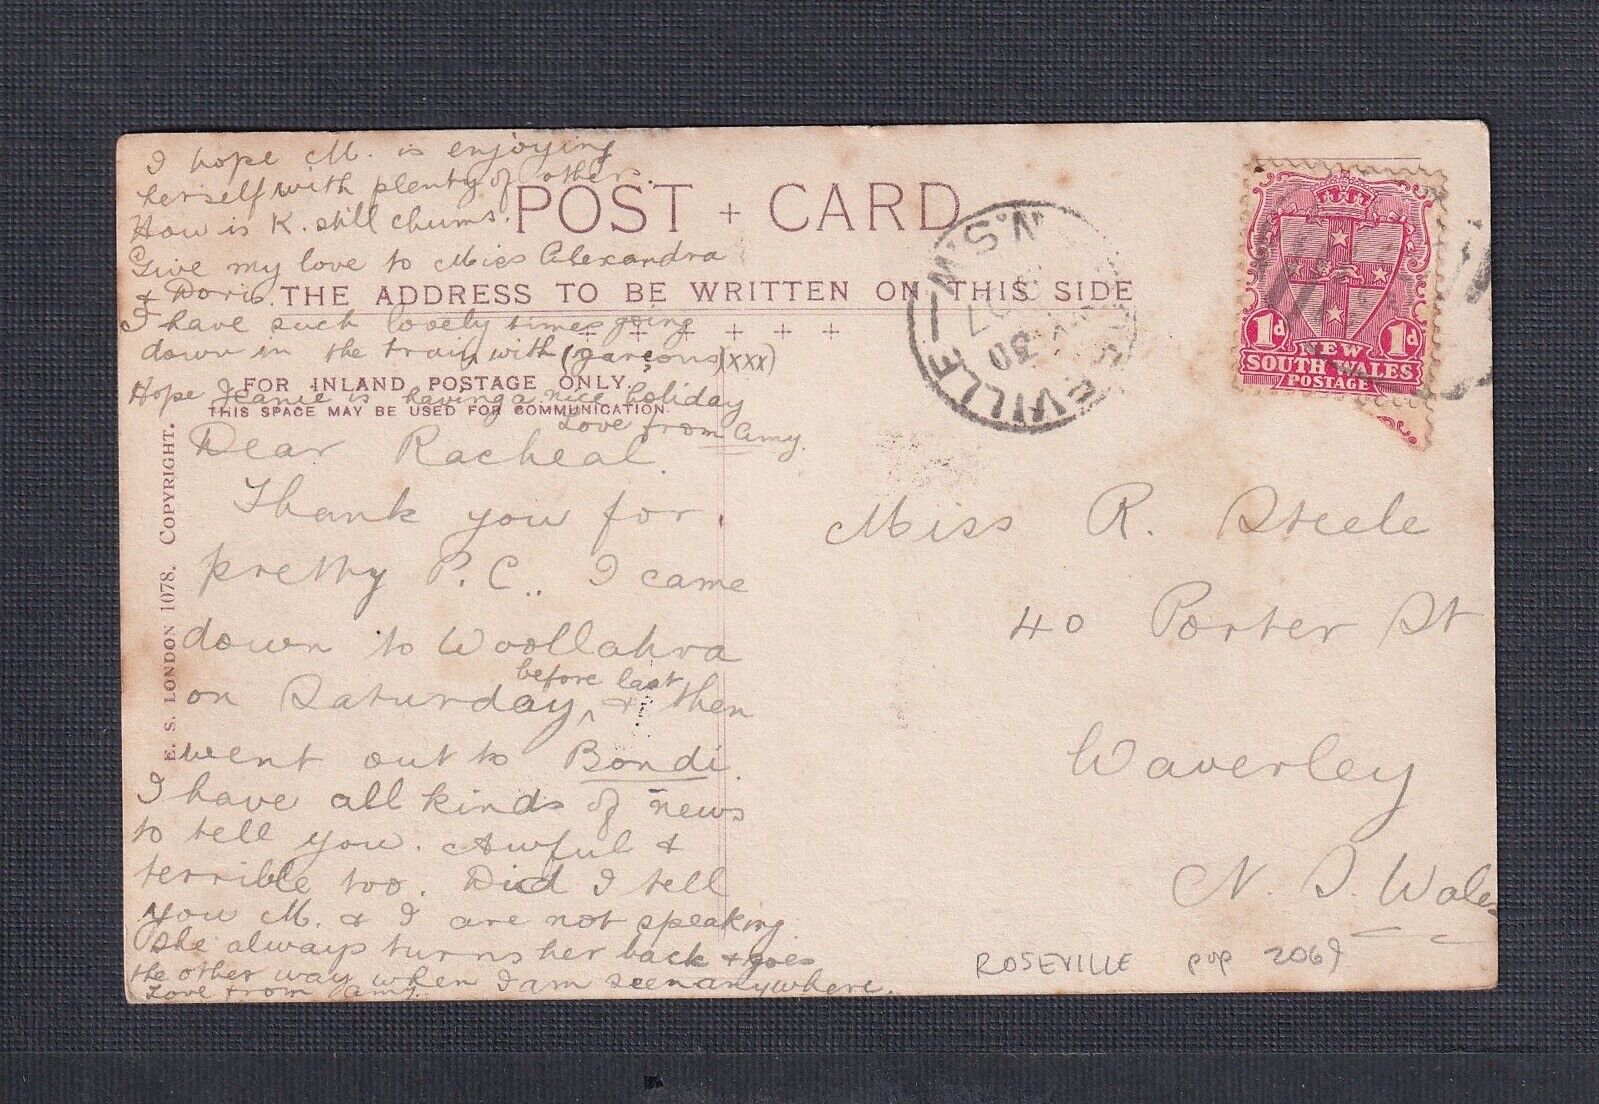 I hope M. is enjoying
herself with plenty of others.
How is K. still chums.
Give my love to Miss Alexandra
& Doris.
I have such lovely times going
down in the train with (garcons)(xxx)
Hope Jeanie is having a nice holiday
Love from Amy.
POST + CARD
THE ADDRESS TO BE WRITTEN ON THIS SIDE
+ + + + + +
FOR INLAND POSTAGE ONLY,
THIS SPACE MAY BE USED FOR COMMUNICATION.
E. S. LONDON 1078. COPYRIGHT.
Dear Racheal.
Thank you for
pretty P.C.. I came
down to Woollahra
before last
on Saturday ^ & then
went out to Bondi.
I have all kinds of news
to tell you. Awful &
terrible too. Did I tell
you M. & I are not speaking.
She always turns her back & goes
the other way when I am seen anywhere.
Love from Amy.
EVILLE — N.S.W
1d 1d
NEW
SOUTH WALES
POSTAGE
Miss R. Steele
40 Porter St
Waverley
N. S. Wales
ROSEVILLE pop 2069